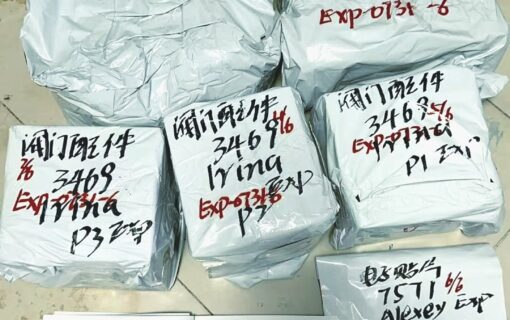 Exp-0731-6
阀门配件
3/6
3469
Exp-0731-6
Irina
P3 Exp
阀门配件
3469
4/6
Irina
Exp-0731-6
Exp
阀门配件
3469
5/6
Exp-0731-6
Irina
P1 Exp
7571
6/6
Alexey Exp